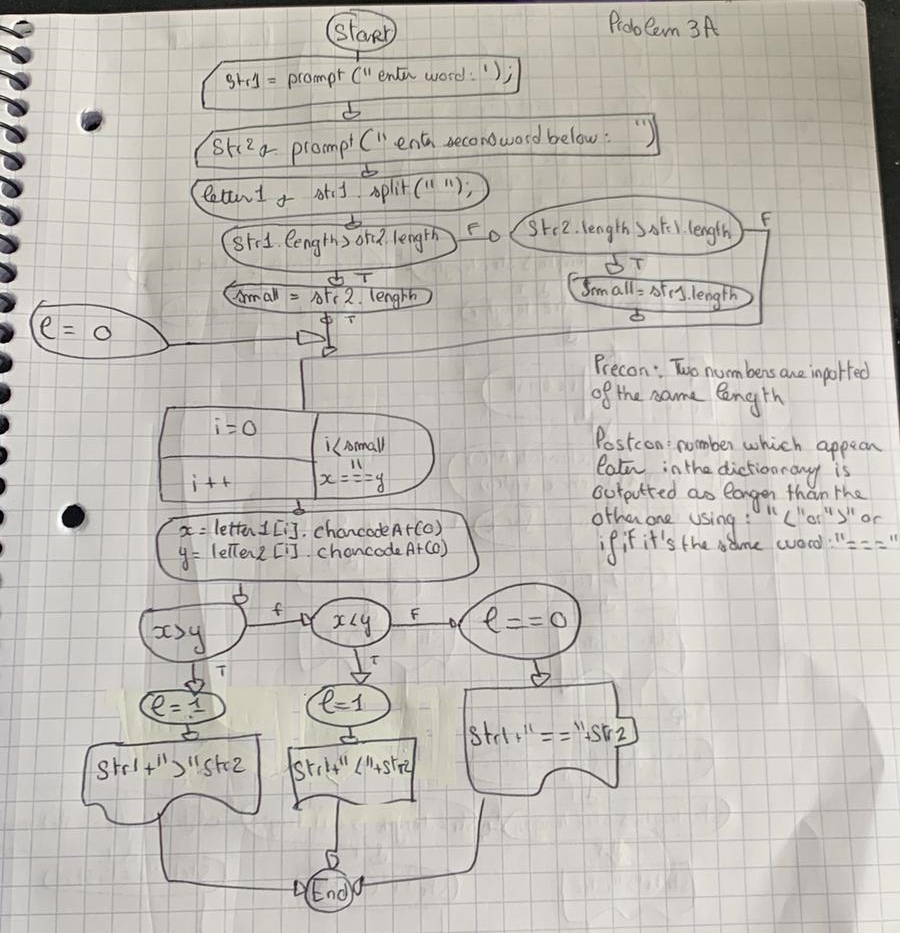 Start
Problem 3A
Str1 = prompt ("enter word: ');
Str2 = prompt ("enter second word below: ")
letter1 = str1.split("");
Str1.length>str2.length
F
Str2.length>str1.length
F
T
T
small = str2.length
Small=str1.length
T
l= 0
Precon: Two numbers are inputted
of the same length
i=0
i<small
"
i++
x===y
Postcon: number which appear
later in the dictionnary is
outputted as larger than the
other one using: "<"or">" or
if if it's the same word:"==="
x=letter1[i].charcodeAt(0)
y= letter2[i].charcodeAt(0)
x>y
f
x<y
F
l==0
T
T
l=1
l=1
Str1+">"str2
Str1+"<"+str2
Str1+"=="+Str2
End